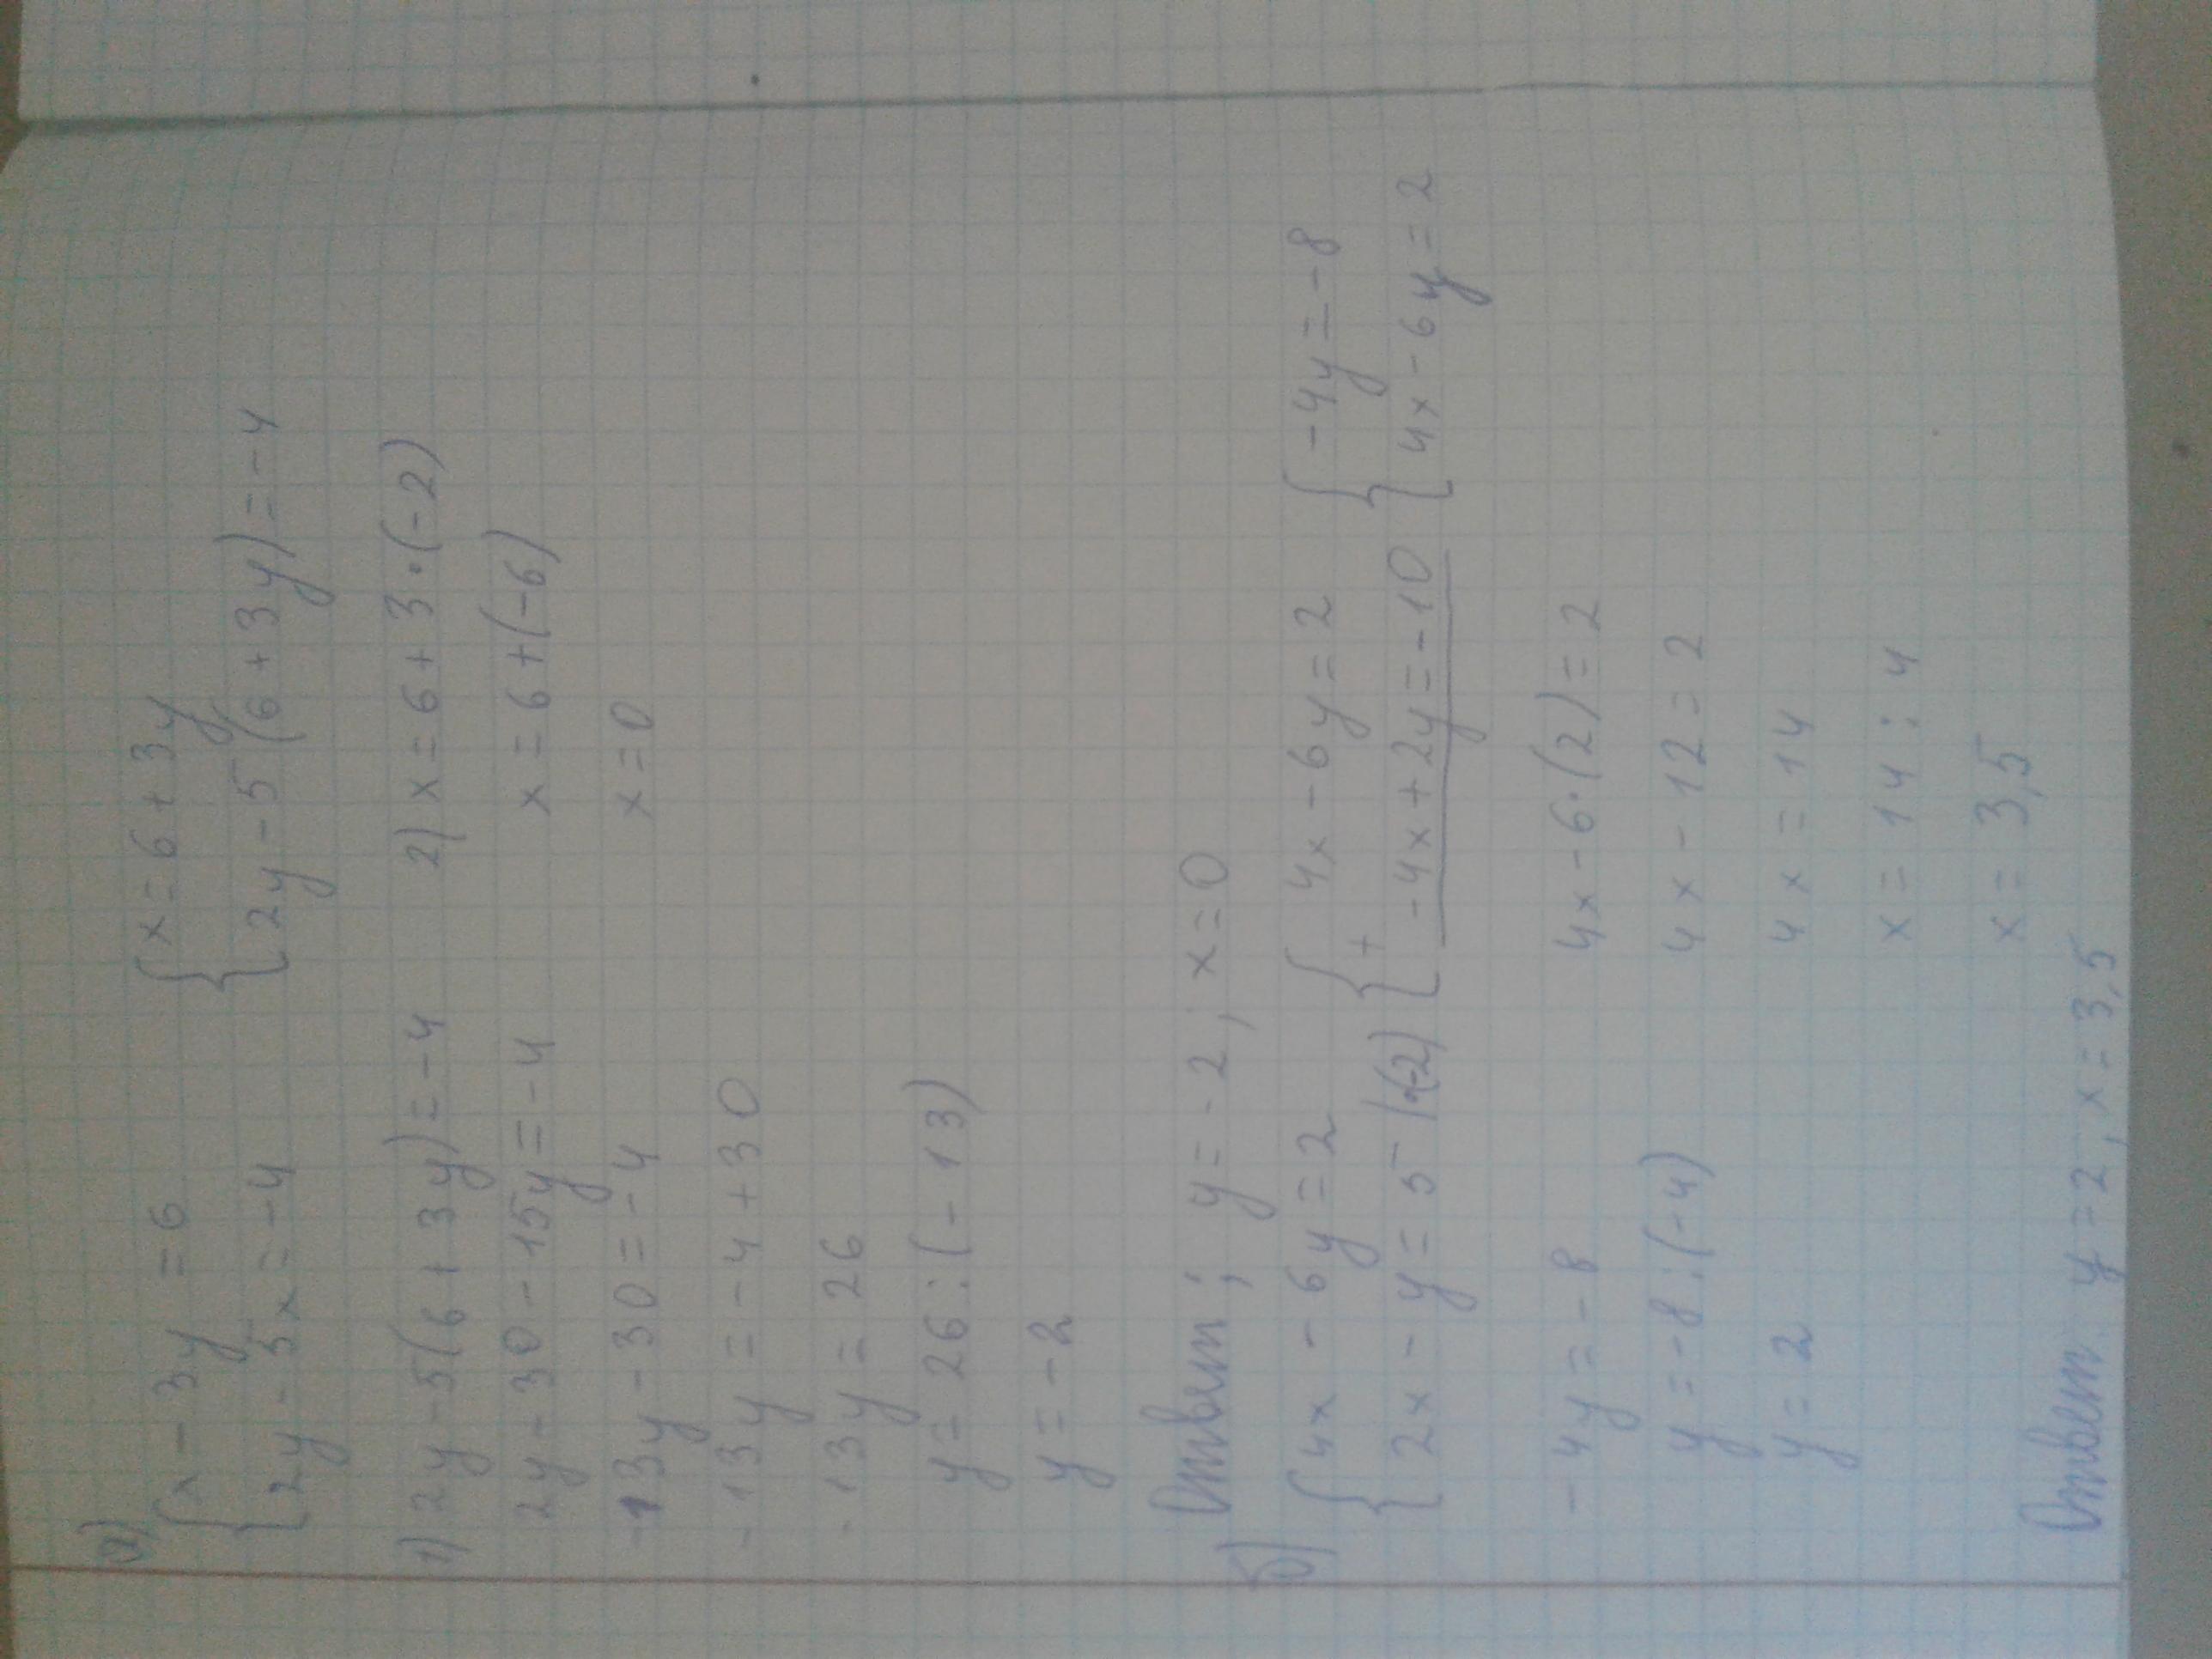 а)
{ x - 3y = 6   { x = 6 + 3y
{ 2y - 5x = -4   { 2y - 5(6 + 3y) = -4
1) 2y - 5(6 + 3y) = -4   2) x = 6 + 3·(-2)
2y - 30 - 15y = -4   x = 6 + (-6)
-13y - 30 = -4   x = 0
-13y = -4 + 30
-13y = 26
y = 26 : (-13)
y = -2
Ответ; y = -2; x = 0
б) { 4x - 6y = 2   { + 4x - 6y = 2   { -4y = -8
{ 2x - y = 5 |·(-2)   { -4x + 2y = -10   { 4x - 6y = 2
-4y = -8   4x - 6·(2) = 2
y = -8 : (-4)   4x - 12 = 2
y = 2   4x = 14
x = 14 : 4
x = 3,5
Ответ. y = 2, x = 3,5